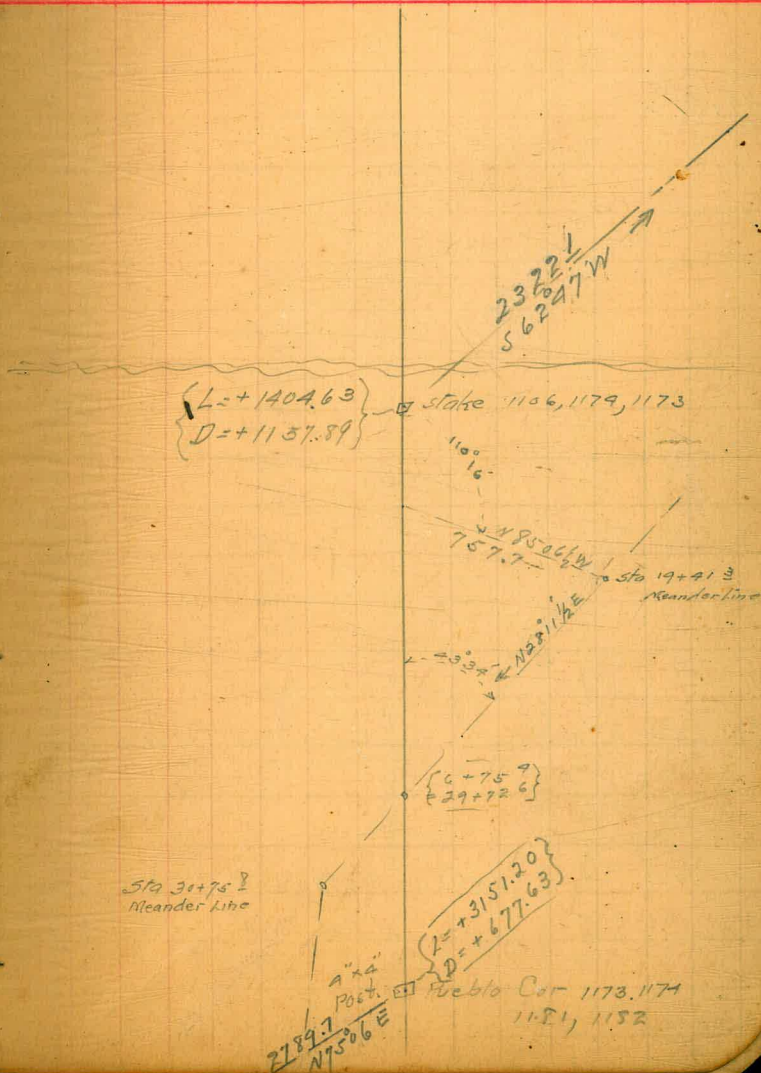 2322.1
S 62°47' W
L = + 1404.63
D = + 1157.89
stake 1106, 1174, 1173
110°
16'
N 85°06 1/2 W
757.7
Sta 19+41 3
Meander Line
N 28°11 1/2 E
43°34'
6+75 4
29+72 6
Sta 30+75 8
Meander Line
L = +3151.20
D = + 677.63
4" x 4"
Post.
Pueblo Cor 1173, 1174
1181, 1182
2789.7
N 75°06' E